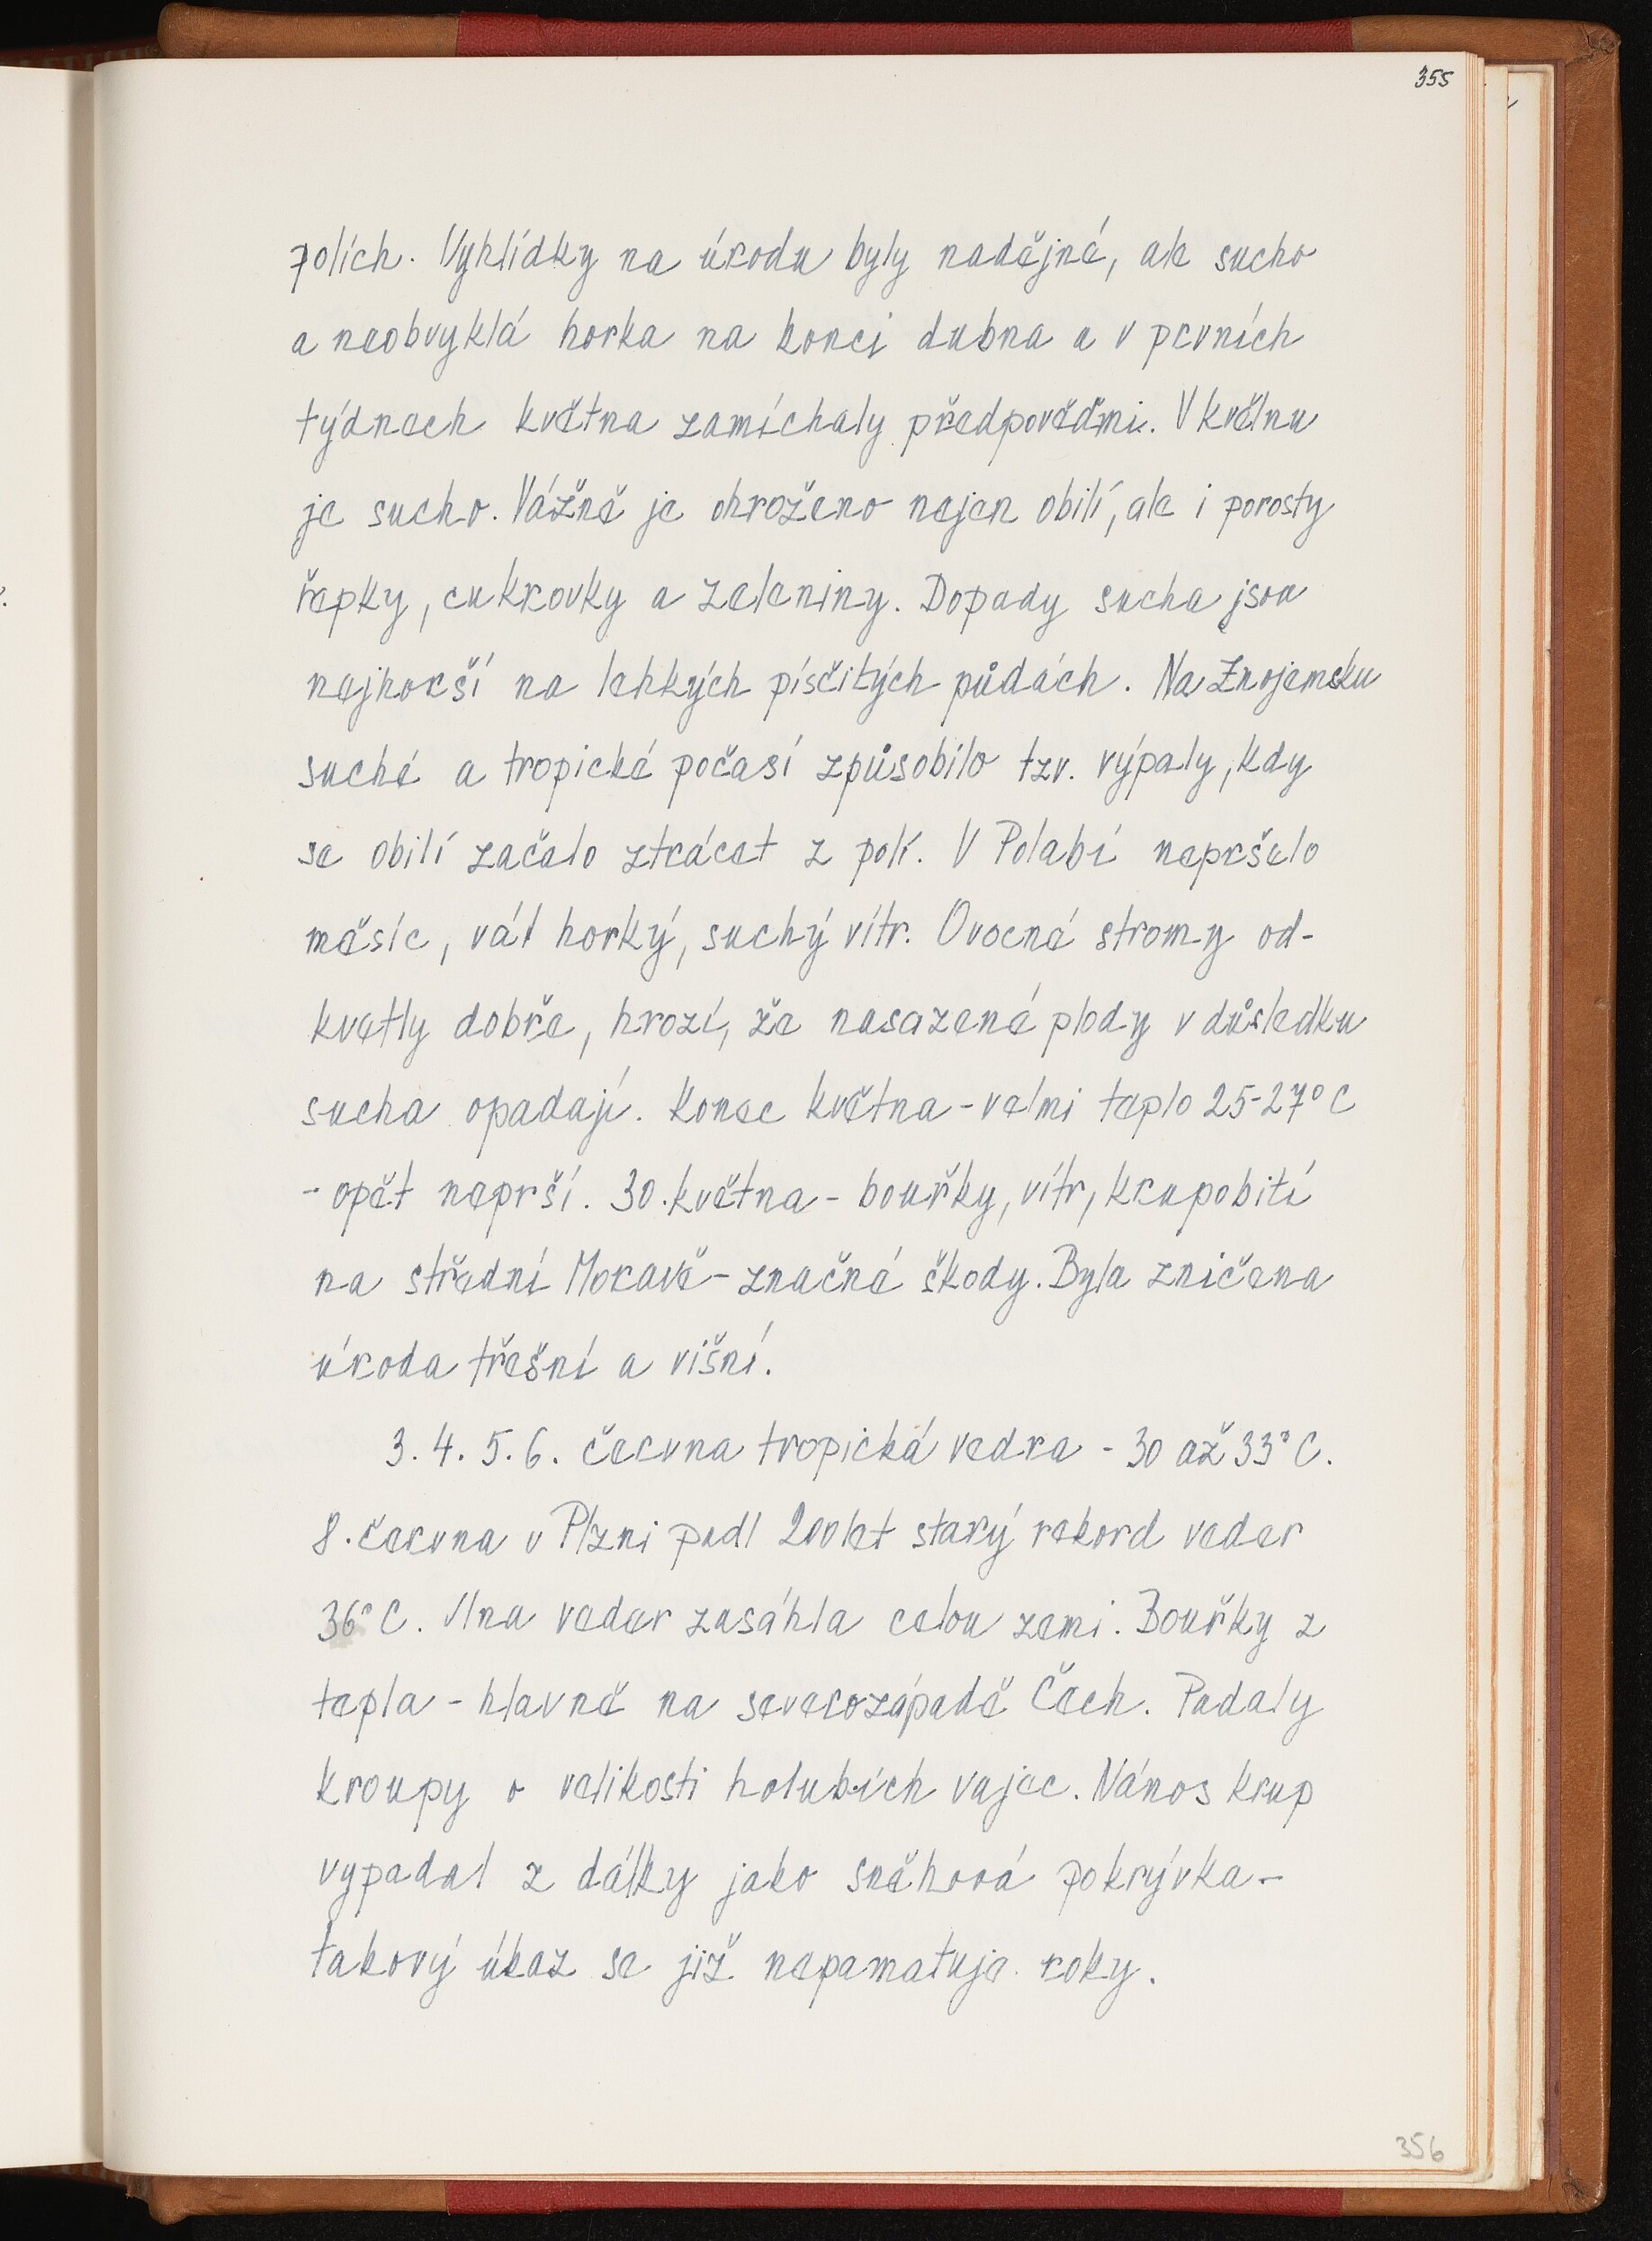 355
polích. Vyhlídky na úrodu byly nadějné, ale sucho
a neobvyklá horka na konci dubna a v prvních
týdnech května zamíchaly předpověďmi. V květnu
je sucho. Vážně je ohroženo nejen obilí, ale i porosty
řepky, cukrovky a zeleniny. Dopady sucha jsou
nejhorší na lehkých písčitých půdách. Na Znojemsku
suché a tropické počasí způsobilo tzv. výpaly, kdy
se obilí začalo ztrácet z polí. V Polabí nepršelo
měsíc, vál horký, suchý vítr. Ovocné stromy od-
kvetly dobře, hrozí, že nasazené plody v důsledku
sucha opadají. Konec května - velmi teplo 25-27°C
- opět neprší. 30. května - bouřky, vítr, krupobití
na střední Moravě - značné škody. Byla zničena
úroda třešní a višní.
3. 4. 5. 6. června tropická vedra - 30 až 33°C.
8. června v Plzni padl 200 let starý rekord veder
36°C. Vlna veder zasáhla celou zemi. Bouřky z
tepla - hlavně na severozápadě Čech. Padaly
kroupy o velikosti holubích vajec. Nános krup
vypadal z dálky jako sněhová pokrývka -
takový úkaz se již nepamatuje roky.
356